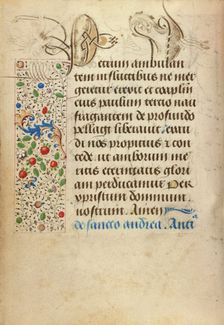 Petrum ambulan
tem in fluctibus ne mer
geretur erexit et coapostolum
eius paulum tercio nau
fragantem de profundo
pellagi liberauit exau
di nos propitius et con
cede ut amborum me
ritis eternitatis glori
am perducamur Per
xpristum dominum
nostrum. Amen
de sancto andrea. Anti